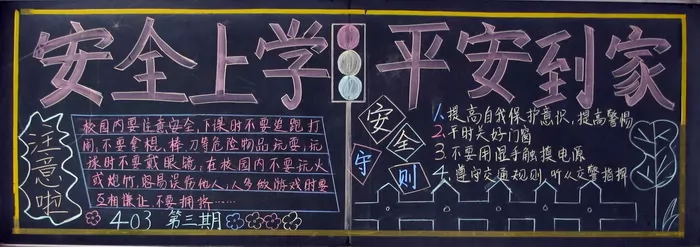 安全上学 平安到家
注意啦
校园内要注意安全,下课时不要追跑打
闹,不要拿棍、棒、刀等危险物品玩耍;玩
球时不要戴眼镜;在校园内不要玩火
或炮竹,容易误伤他人;人多做游戏时要
互相谦让,不要拥挤……
403 第三期
安全
守则
1、提高自我保护意识,提高警惕
2、平时关好门窗
3、不要用湿手触摸电源
4、遵守交通规则,听从交警指挥